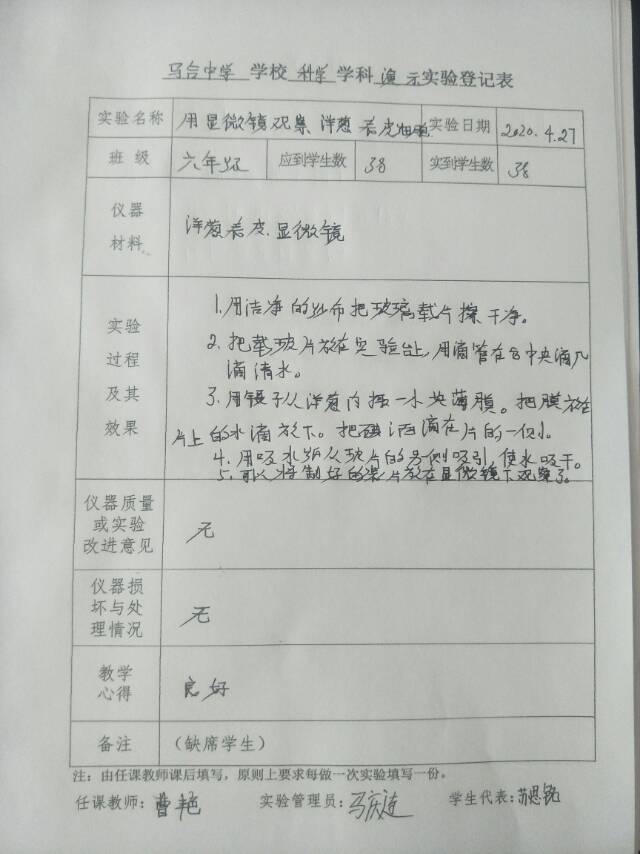 马台中学 学校 科学 学科 演示实验登记表
实验名称 用显微镜观察洋葱表皮细胞 实验日期 2020.4.27
班级 六年级 应到学生数 38 实到学生数 38
仪器
材料
洋葱表皮、显微镜
实验
过程
及其
效果
1.用洁净的纱布把玻璃载片擦干净。
2.把载玻片放在实验台上,用滴管在中央滴几
滴清水。
3.用镊子从洋葱内 一小块薄膜。把膜放在
片上的水滴 下。把碘酒滴在片的一侧。
4.用吸水纸从玻片的另侧吸引,使水吸干。
5. 将制好的装片放在显微镜下观察了。
仪器质量
或实验
改进意见
无
仪器损
坏与处
理情况
无
教学
心得
良好
备注 (缺席学生)
注:由任课教师课后填写,原则上要求每做一次实验填写一份。
任课教师:曹艳 实验管理员:马庆莲 学生代表:苏思铭